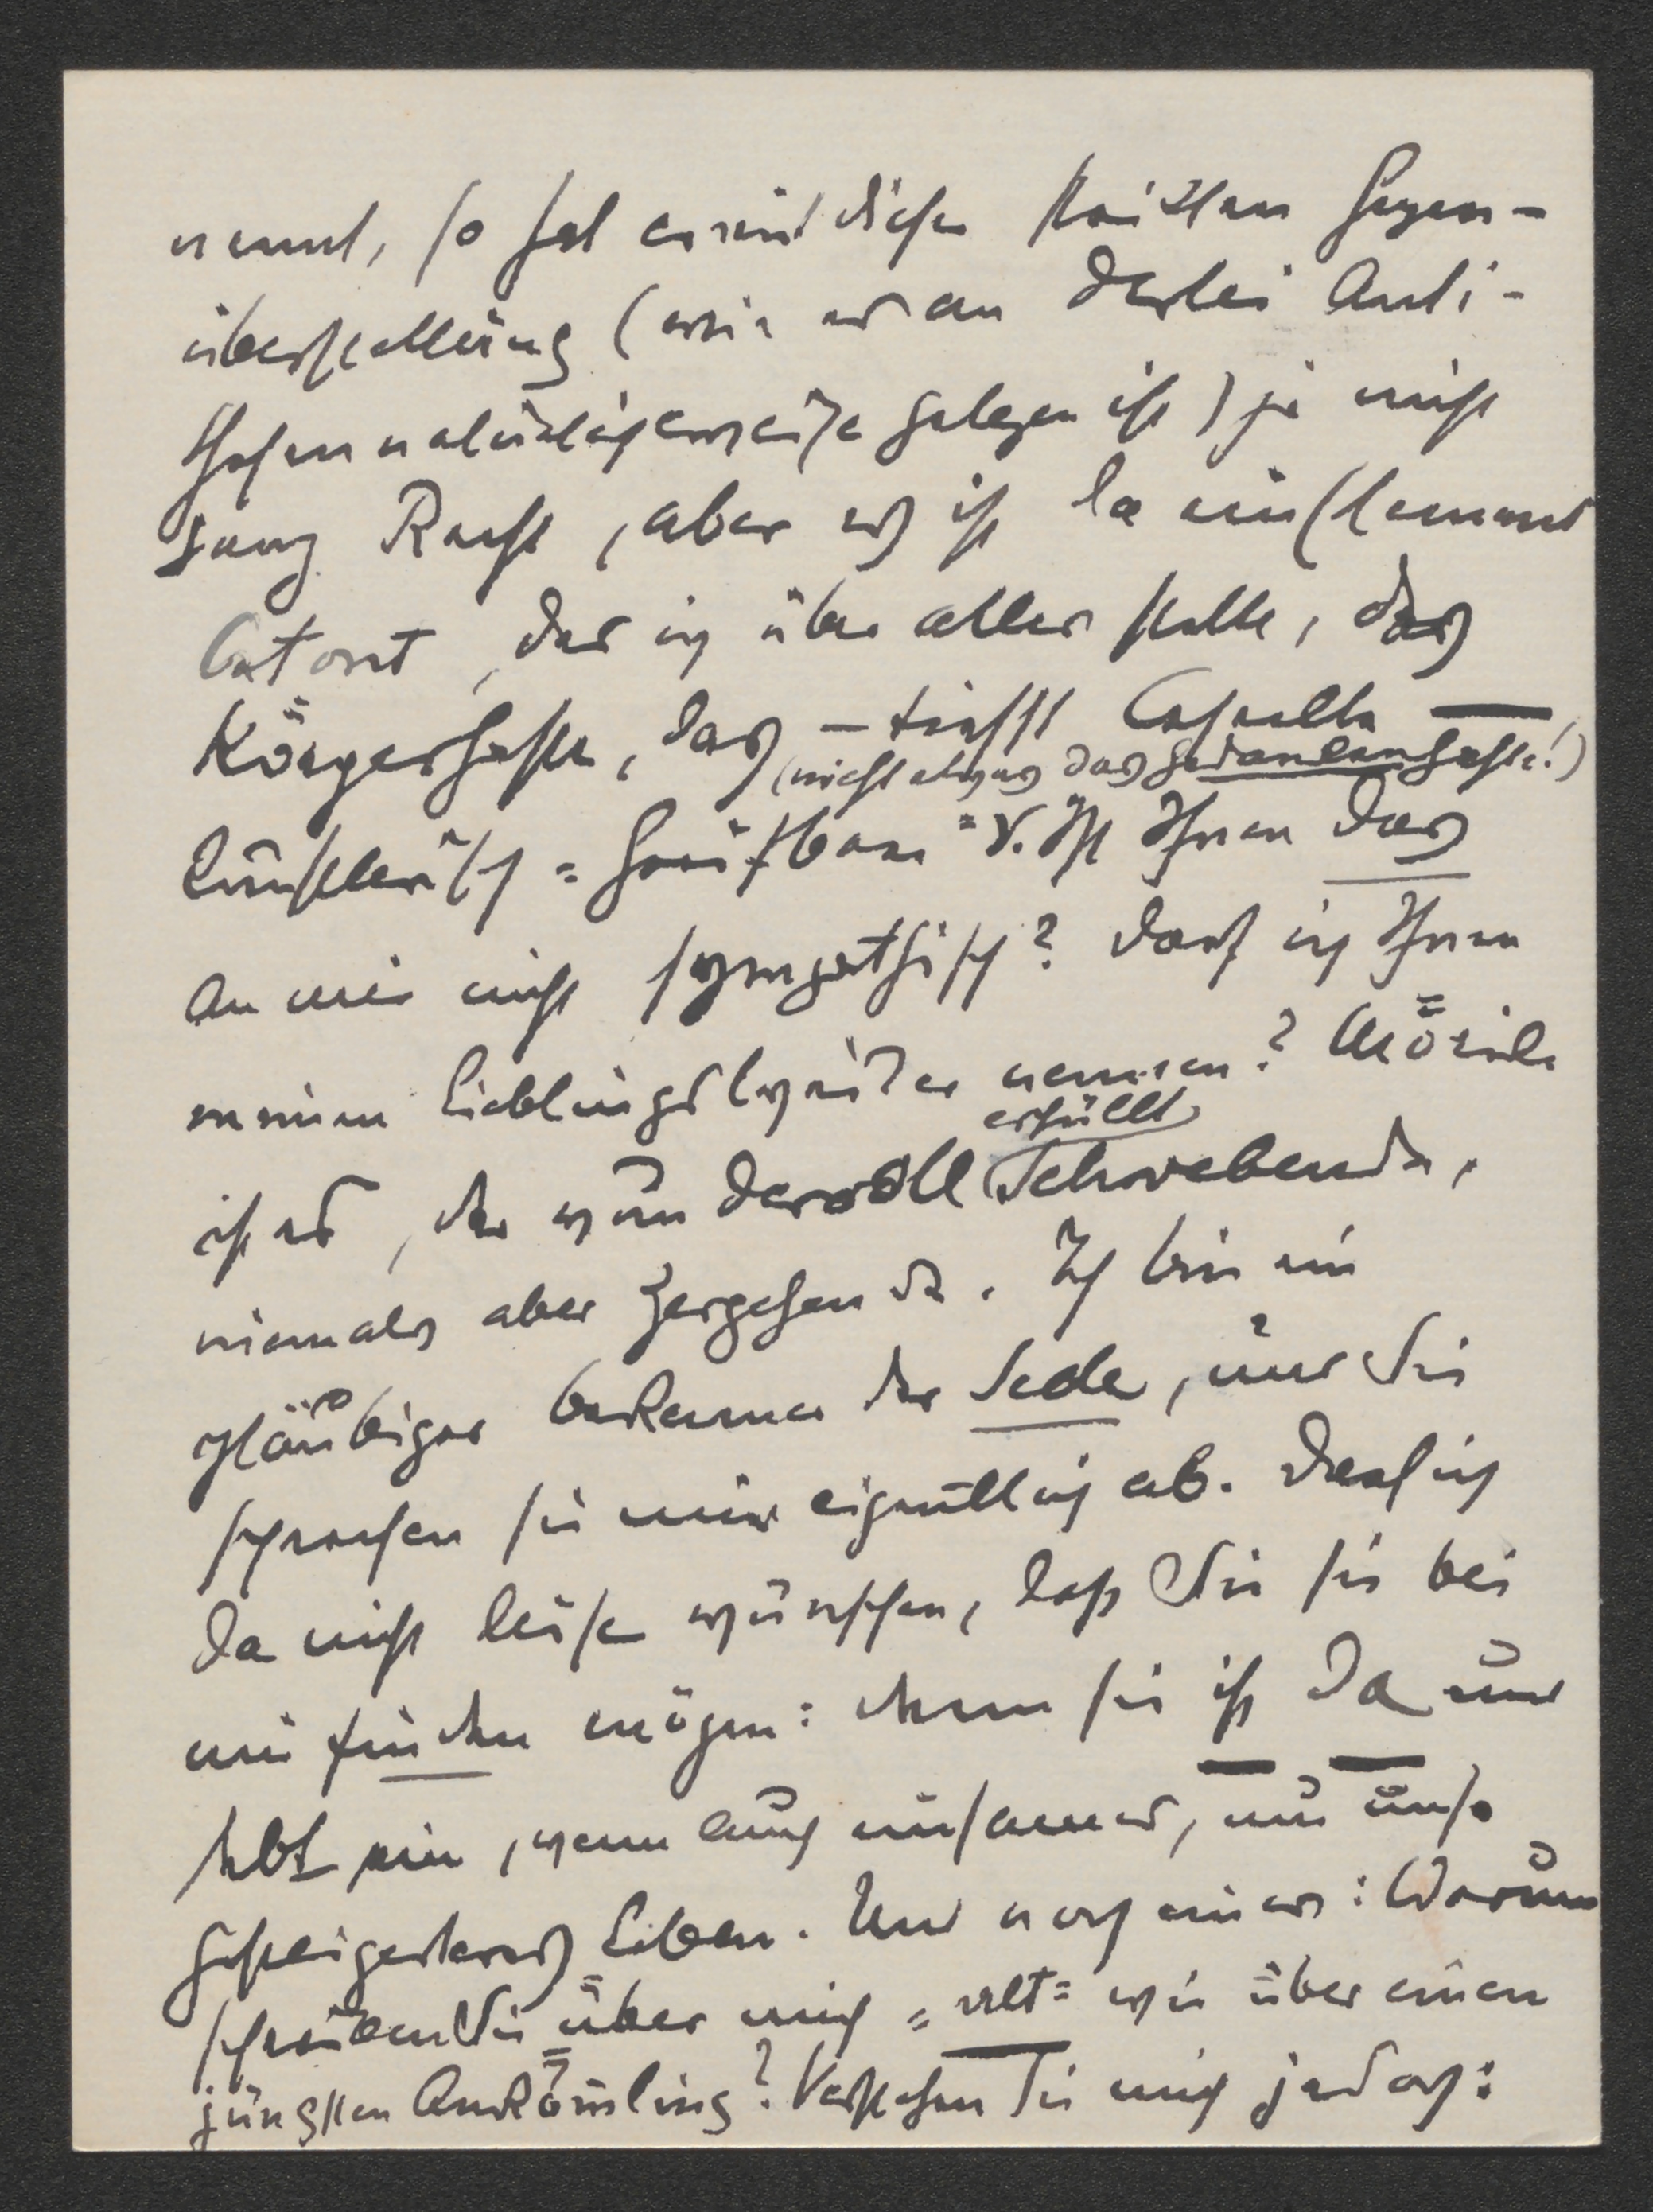 nennt, so hat er mit dieser strikten Gegen-
überstellung (wie es an derlei Anti-
thesen natürlicherweise gelegen ist) ja nicht
ganz Recht, aber es ist da ein Element
betont, das ich über alles stelle, das
Körperhafte, das – trifft Capella –
(nicht etwas das Gedankenhafte!)
künstlerisch = Greifbare. Ist Ihnen das
an mir nicht sympathisch? Darf ich Ihnen
meinen Lieblingslyriker nennen? Mörike
ist es, der wundervoll erfüllt Schwebende,
niemals aber Zergehende. Ich bin ein
gläubiger Bekenner der Seele, nur Sie
sprechen sie mir eigentlich ab. Darf ich
da nicht leise wünschen, daß Sie sie bei
mir finden mögen: denn sie ist da und
lebt ein, wenn auch einsames, um so
gesteigerteres Leben. Und noch eines: Warum
schreiben Sie über mich „alt" wie über einen
jüngsten Ankömmling? Verstehen Sie mich jedoch: